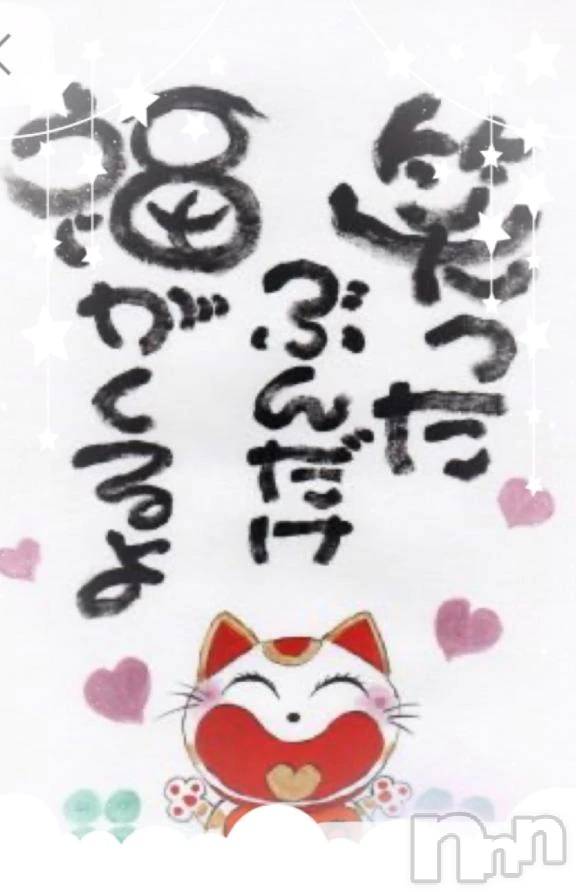 笑った
ぶんだけ
福がくるよ
nnn